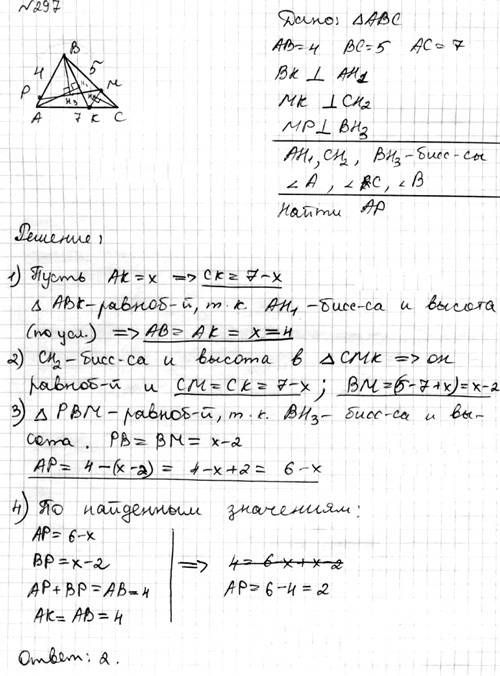 №297
Дано: △ABC
AB=4 BC=5 AC=7
BK ⊥ AH₁
MK ⊥ CH₂
MP ⊥ BH₃
AH₁, CH₂, BH₃ - бисс-сы
∠A, ∠C, ∠B
Найти AP
B
4 5
P M
H₃
A 7 K C
Решение:
1) Пусть AK = x => CK = 7-x
△ ABK - равноб-й, т.к. AH₁ - бисс-са и высота
(по усл.) => AB = AK = x = 4
2) CH₂ - бисс-са и высота в △CMK => он
равноб-й и CM = CK = 7-x; BM = (5-7+x) = x-2
3) △ PBM - равноб-й, т.к. BH₃ - бисс-са и вы-
сота. PB = BM = x-2
AP = 4-(x-2) = 4-x+2 = 6-x
4) По найденным значениям:
AP = 6-x
BP = x-2 => 4 = 6-x+x-2
AP + BP = AB = 4 AP = 6-4 = 2
AK = AB = 4
Ответ: 2.